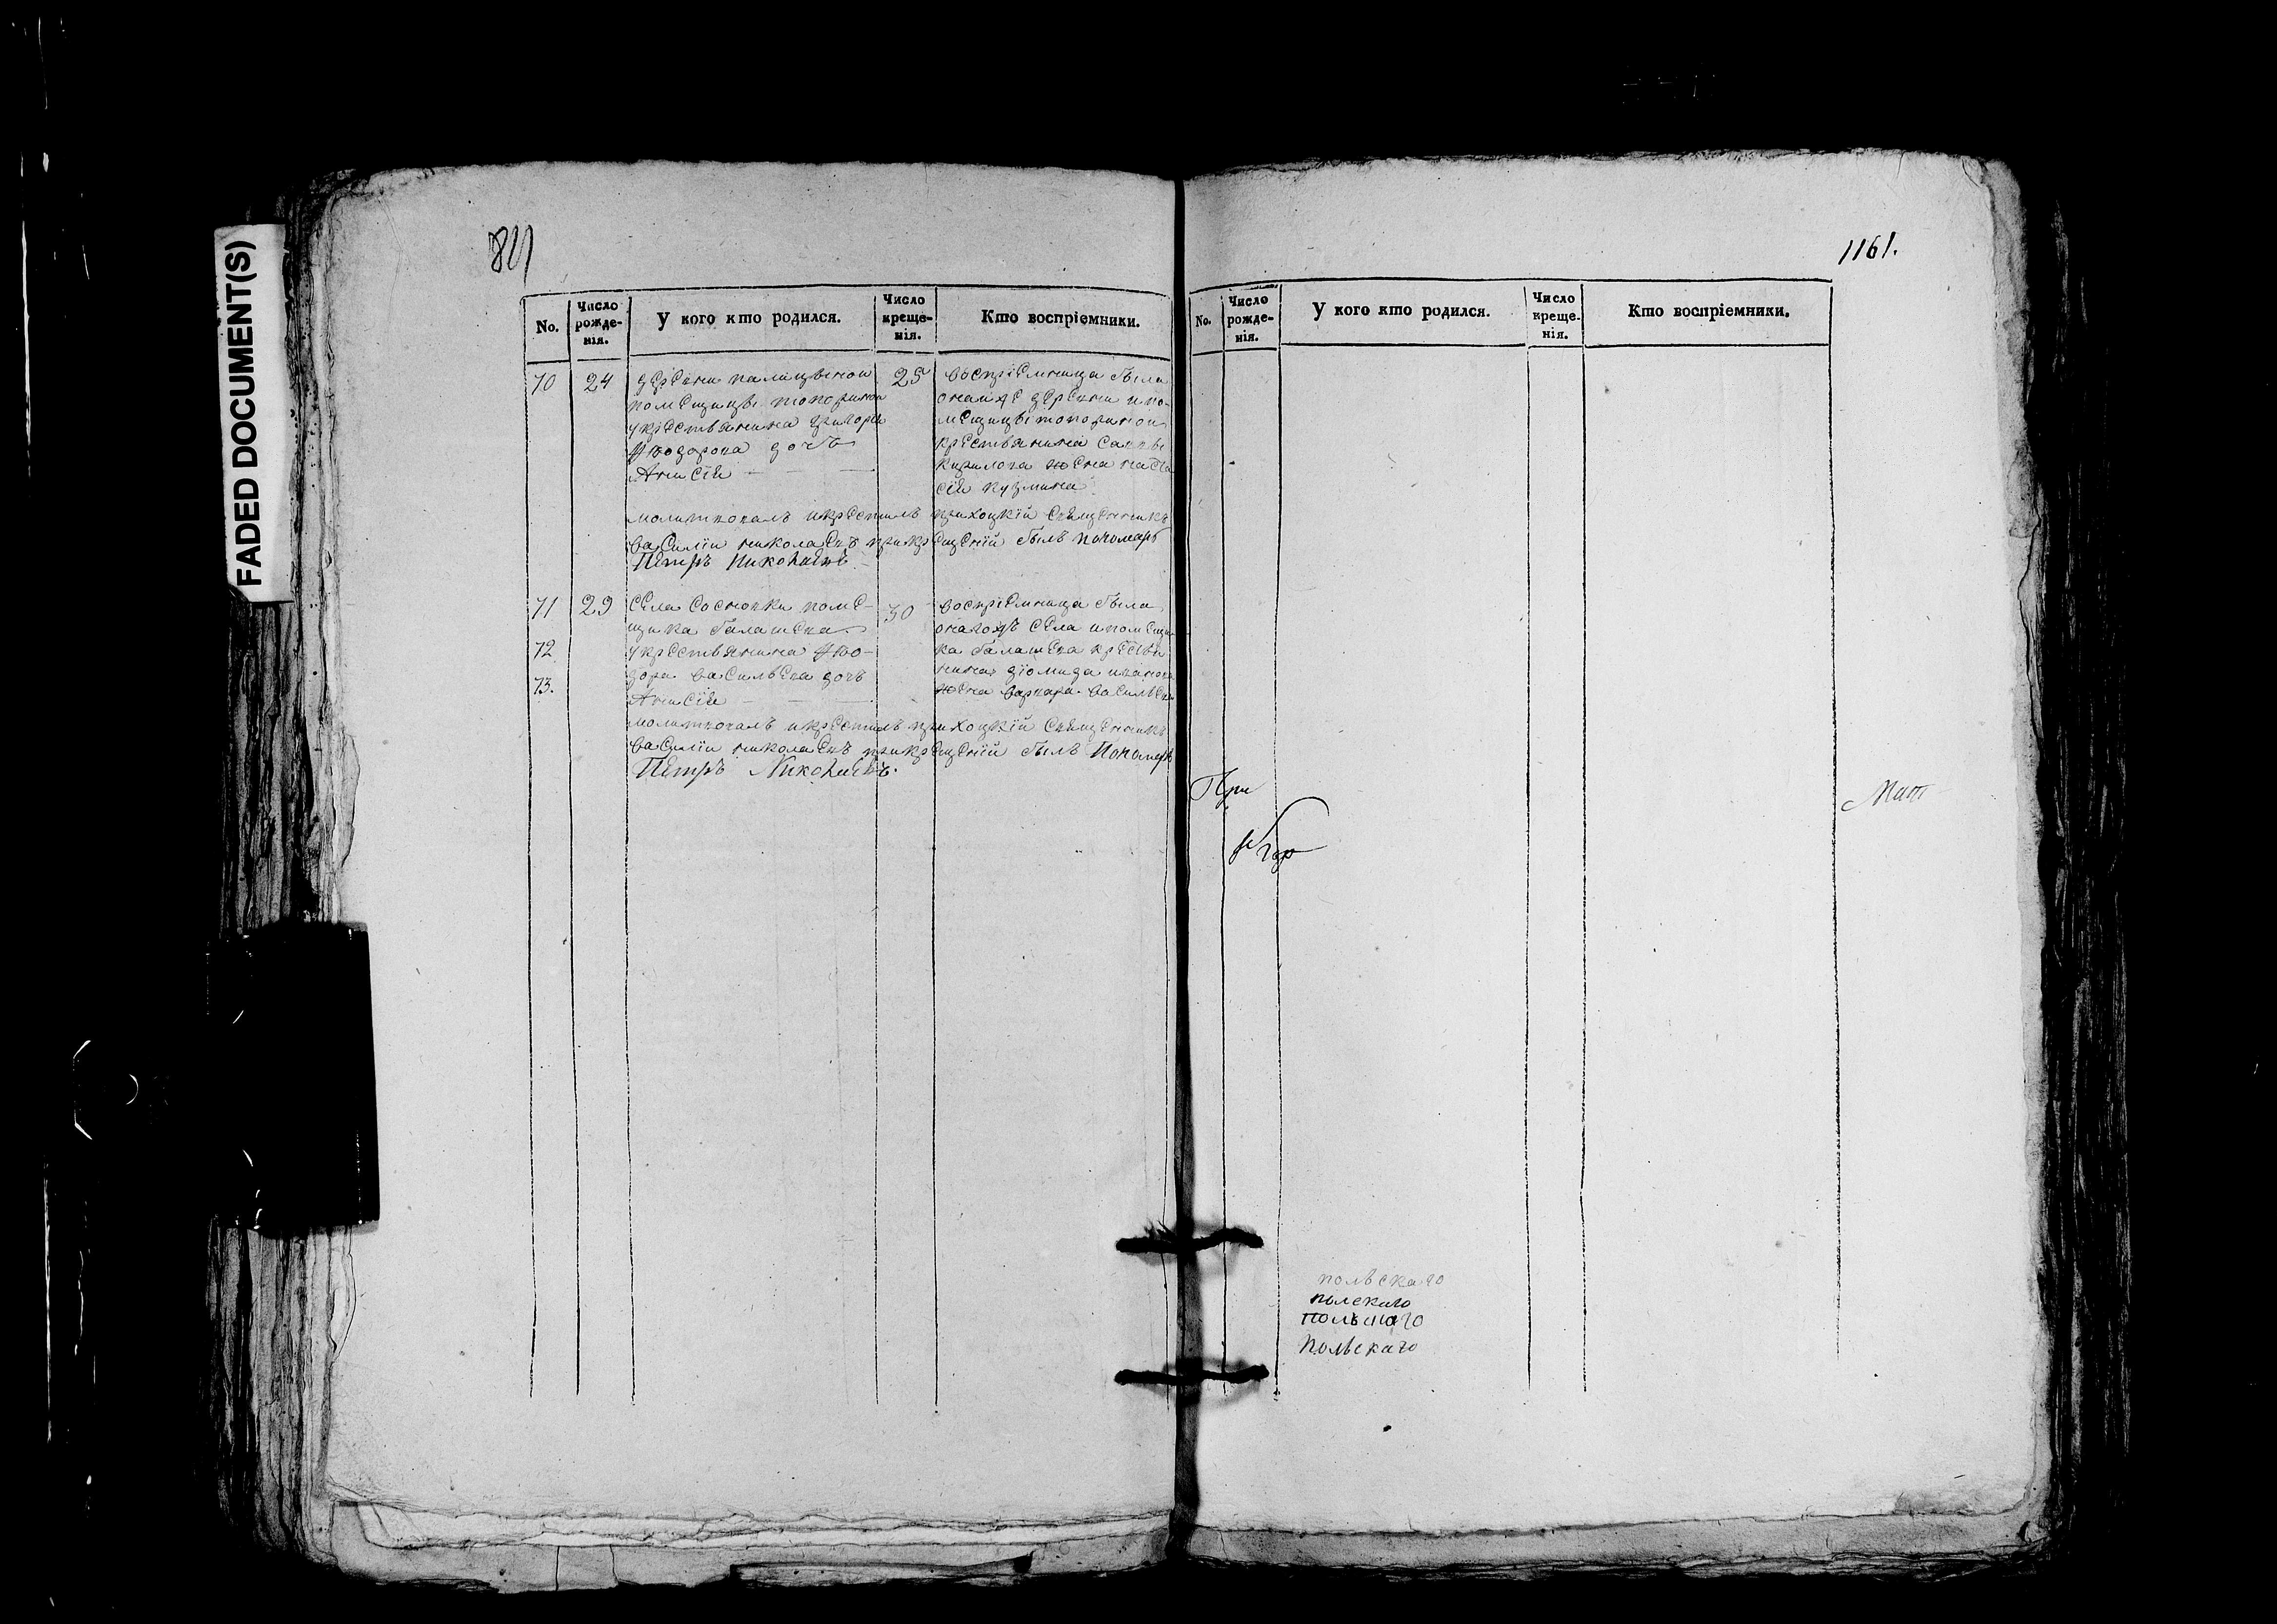 FADED DOCUMENT(S)
1161.
No.
Число рожде- нія.
У кого кто родился.
Число креще- нія.
Кто воспріемники.
70
24
деревни палицыной
помещицы топориной
укрестьянина григорья
Фіодорова дочь
Анисія
25
воспріемница была
онойже деревни ипо-
мещицы топориной
крестьянина саввы
кирилова жена
кузмина
молитвовалъ икрестилъ прихоцкій священникъ
василіи николаевъ прикрещеніи былъ пономарь
Петръ Николаевъ
71
29
села сосновки поме-
щика балашева
72
укрестьянина Фіо-
73.
дора васильева дочь
Анисія
30
воспріемница была
оногожъ села ипомещи-
ка балашева крестья
нина діомида иванова
жена варвара васильева
молитвовалъ икрестилъ прихоцкій священникъ
василіи николаевъ прикрещеніи былъ Пономарь
Петръ Николаевъ.
No.
Число рожде- нія.
У кого кто родился.
Число креще- нія.
Кто воспріемники.
При
польскаго
полскаго
Польскаго